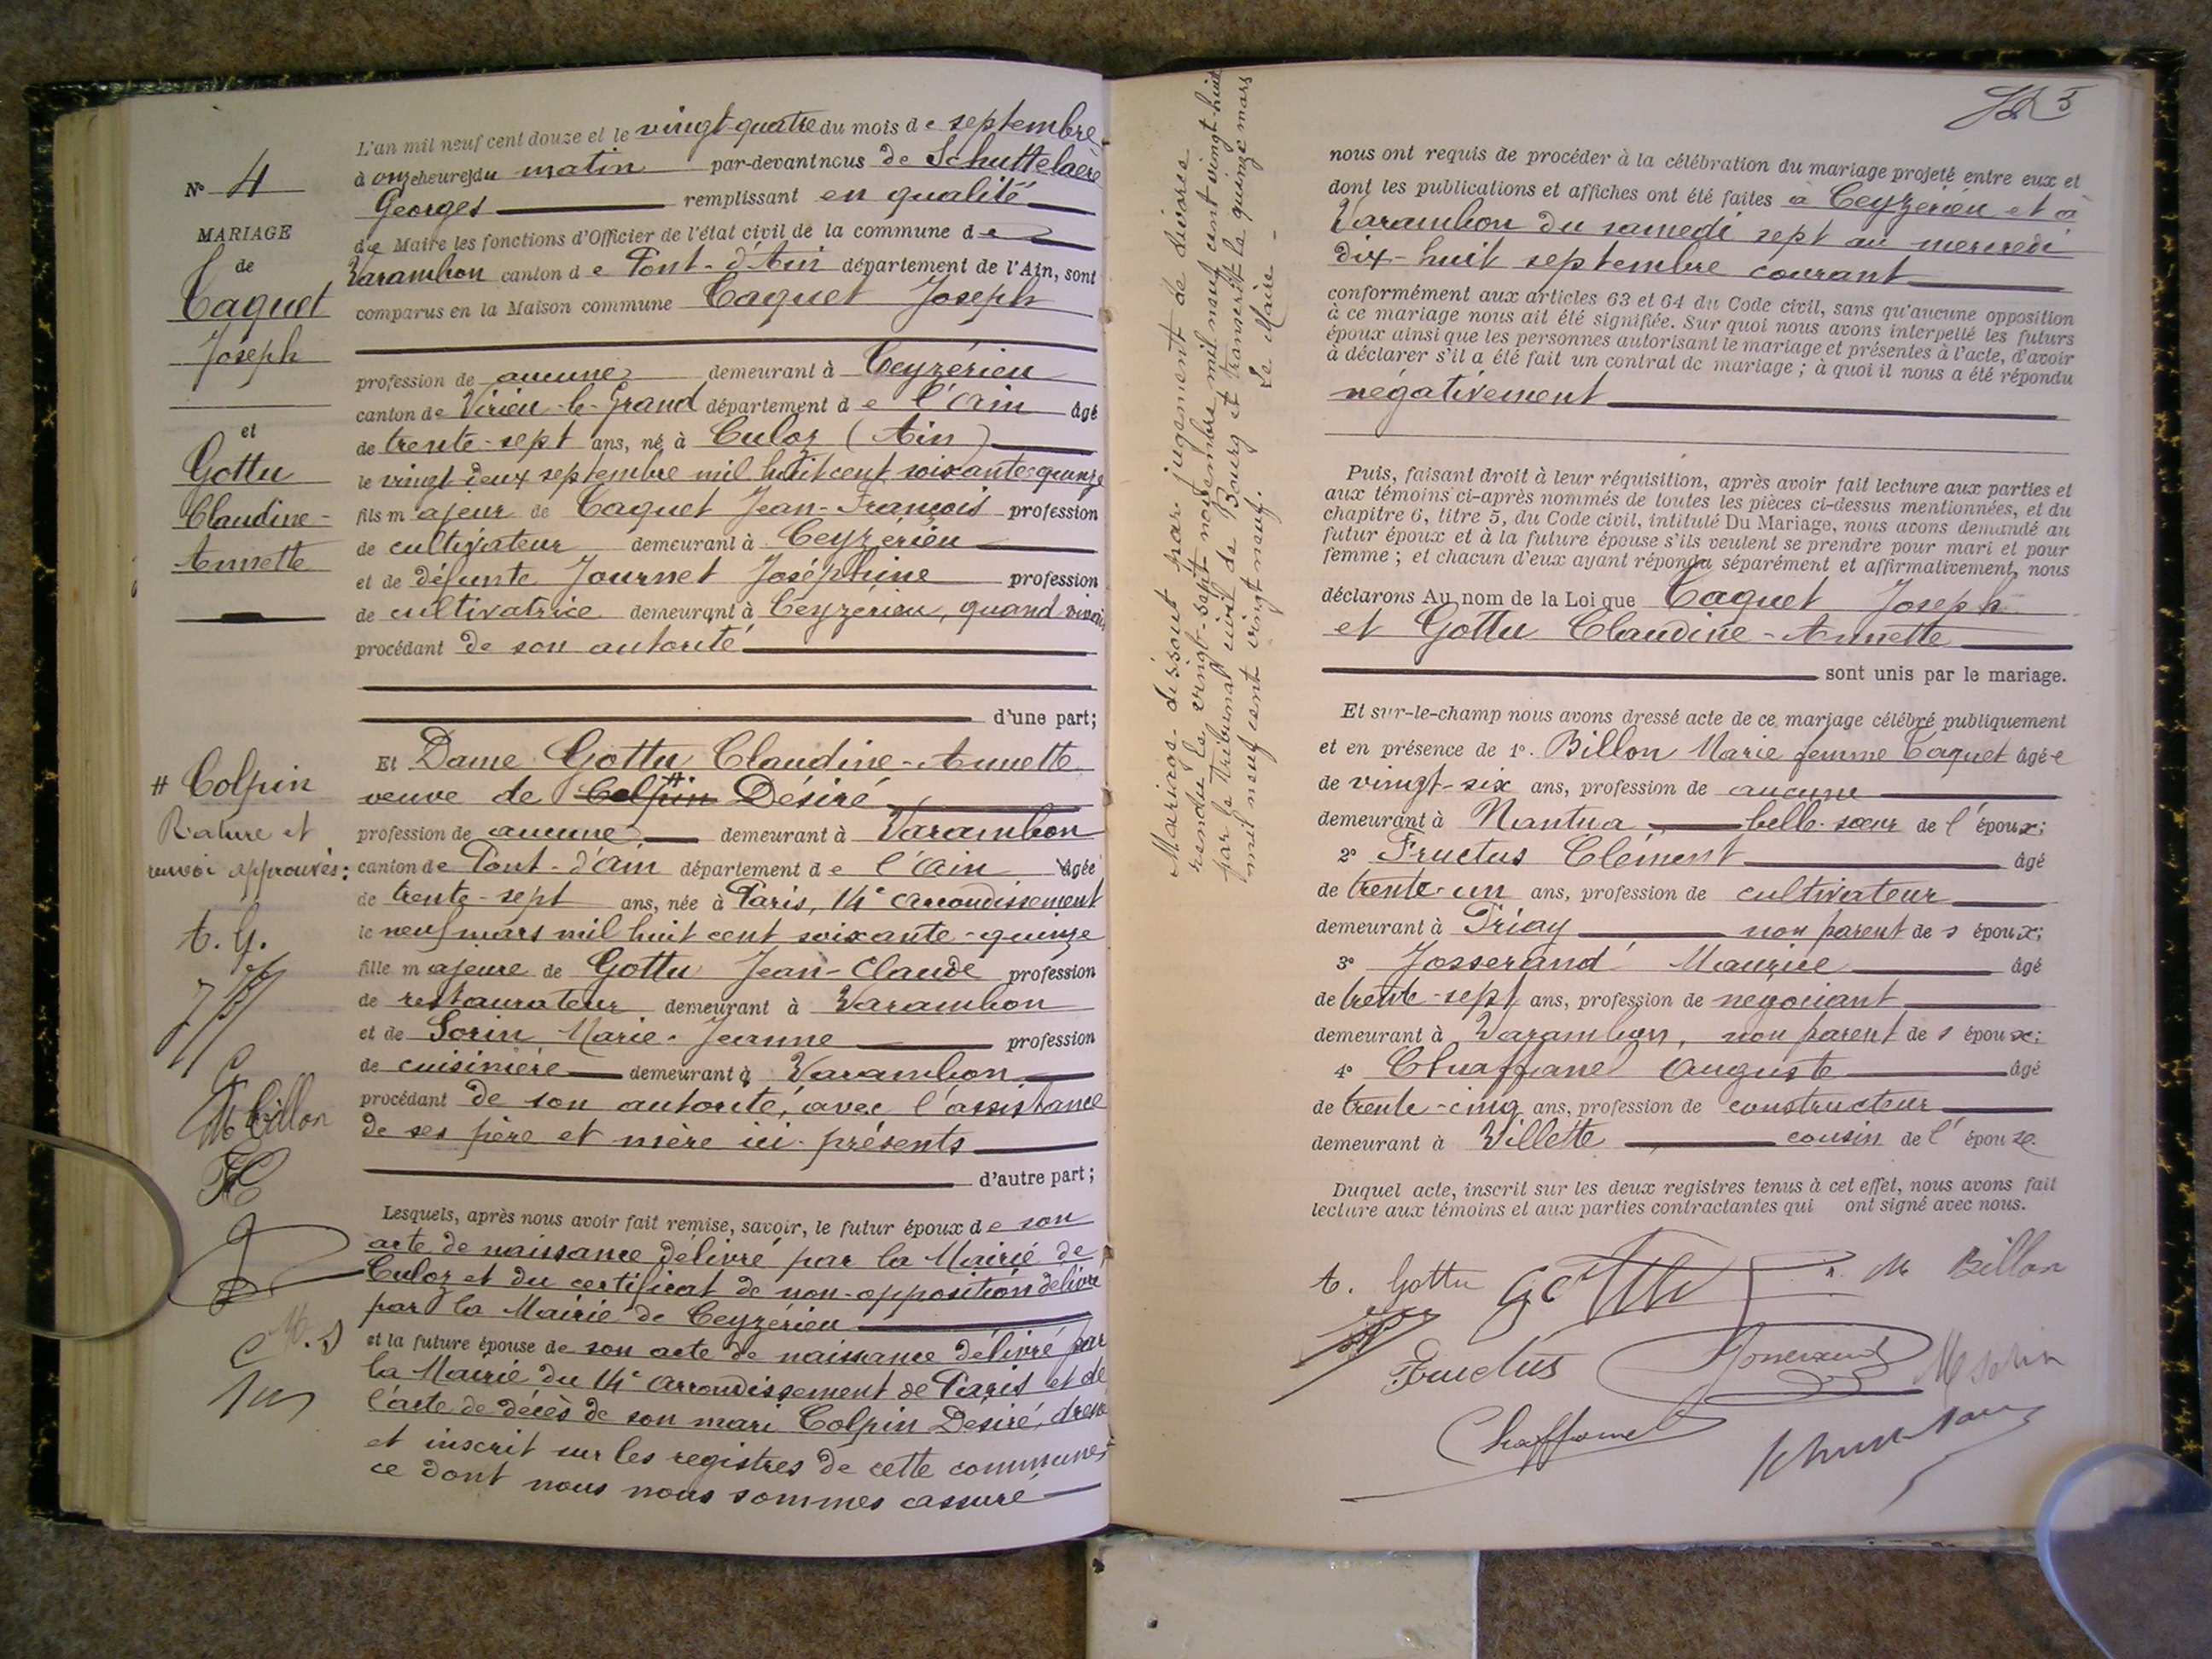 N° 4
MARIAGE
de
Caquet
Joseph
et
Gottu
Claudine-
Annette
# Colpin
Rature et
renvoi approuvés:
A. G.
G
M Billon
M. S
L'an mil neuf cent douze et le vingt-quatre du mois de septembre
à onze heures du matin par-devant nous de Schuttelaere
Georges remplissant en qualité
de Maire les fonctions d'Officier de l'état civil de la commune de
Varambon canton de Pont-d'Ain département de l'Ain, sont
comparus en la Maison commune Caquet Joseph
profession de aucune demeurant à Ceyzérieu
canton de Virieu-le-Grand département de l'Ain âgé
de trente-sept ans, né à Culoz (Ain)
le vingt deux septembre mil huit cent soixante-quinze
fils majeur de Caquet Jean-François profession
de cultivateur demeurant à Ceyzérieu
et de défunte Journet Joséphine profession
de cultivatrice demeurant à Ceyzérieu, quand vivait
procédant de son autorité
d'une part;
Et Dame Gottu Claudine-Annette
veuve de Colpin # Désiré
profession de aucune demeurant à Varambon
canton de Pont-d'Ain département de l'Ain âgée
de trente-sept ans, née à Paris, 14e arrondissement
le neuf mars mil huit cent soixante-quinze
fille majeure de Gottu Jean-Claude profession
de restaurateur demeurant à Varambon
et de Sorin Marie-Jeanne profession
de cuisinière demeurant à Varambon
procédant de son autorité, avec l'assistance
de ses père et mère ici présents
d'autre part;
Lesquels, après nous avoir fait remise, savoir, le futur époux de son
acte de naissance délivré par la Mairie de
Culoz et du certificat de non-opposition délivré
par la Mairie de Ceyzérieu
et la future épouse de son acte de naissance délivré par
la Mairie du 14e arrondissement de Paris et de
l'acte de décès de son mari Colpin Désiré, dressé
et inscrit sur les registres de cette commune,
ce dont nous nous sommes assuré
Mariage dissout par jugement de divorce
rendu le vingt-sept novembre mil neuf cent vingt-huit
par le Tribunal civil de Bourg et transcrit le quinze mars
mil neuf cent vingt neuf.
Le Maire
5
nous ont requis de procéder à la célébration du mariage projeté entre eux et
dont les publications et affiches ont été faites à Ceyzérieu et à
Varambon du samedi sept au mercredi
dix-huit septembre courant
conformément aux articles 63 et 64 du Code civil, sans qu'aucune opposition
à ce mariage nous ait été signifiée. Sur quoi nous avons interpellé les futurs
époux ainsi que les personnes autorisant le mariage et présentes à l'acte, d'avoir
à déclarer s'il a été fait un contrat de mariage; à quoi il nous a été répondu
négativement
Puis, faisant droit à leur réquisition, après avoir fait lecture aux parties et
aux témoins ci-après nommés de toutes les pièces ci-dessus mentionnées, et du
chapitre 6, titre 5, du Code civil, intitulé Du Mariage, nous avons demandé au
futur époux et à la future épouse s'ils veulent se prendre pour mari et pour
femme; et chacun d'eux ayant répondu séparément et affirmativement, nous
déclarons Au nom de la Loi que Caquet Joseph
et Gottu Claudine-Annette
sont unis par le mariage.
Et sur-le-champ nous avons dressé acte de ce mariage célébré publiquement
et en présence de 1°. Billon Marie femme Caquet âgée
de vingt-six ans, profession de aucune
demeurant à Nantua belle-sœur de l'époux;
2° Fructus Clément âgé
de trente-un ans, profession de cultivateur
demeurant à Priay non parent des époux;
3° Josserand Maurice âgé
de trente-sept ans, profession de négociant
demeurant à Varambon, non parent des époux;
4° Chaffanel Auguste âgé
de trente-cinq ans, profession de constructeur
demeurant à Villette cousin de l'épouse.
Duquel acte, inscrit sur les deux registres tenus à cet effet, nous avons fait
lecture aux témoins et aux parties contractantes qui ont signé avec nous.
A. Gottu Gottu M Billon
Fructus Josserand M Sorin
Chaffanel